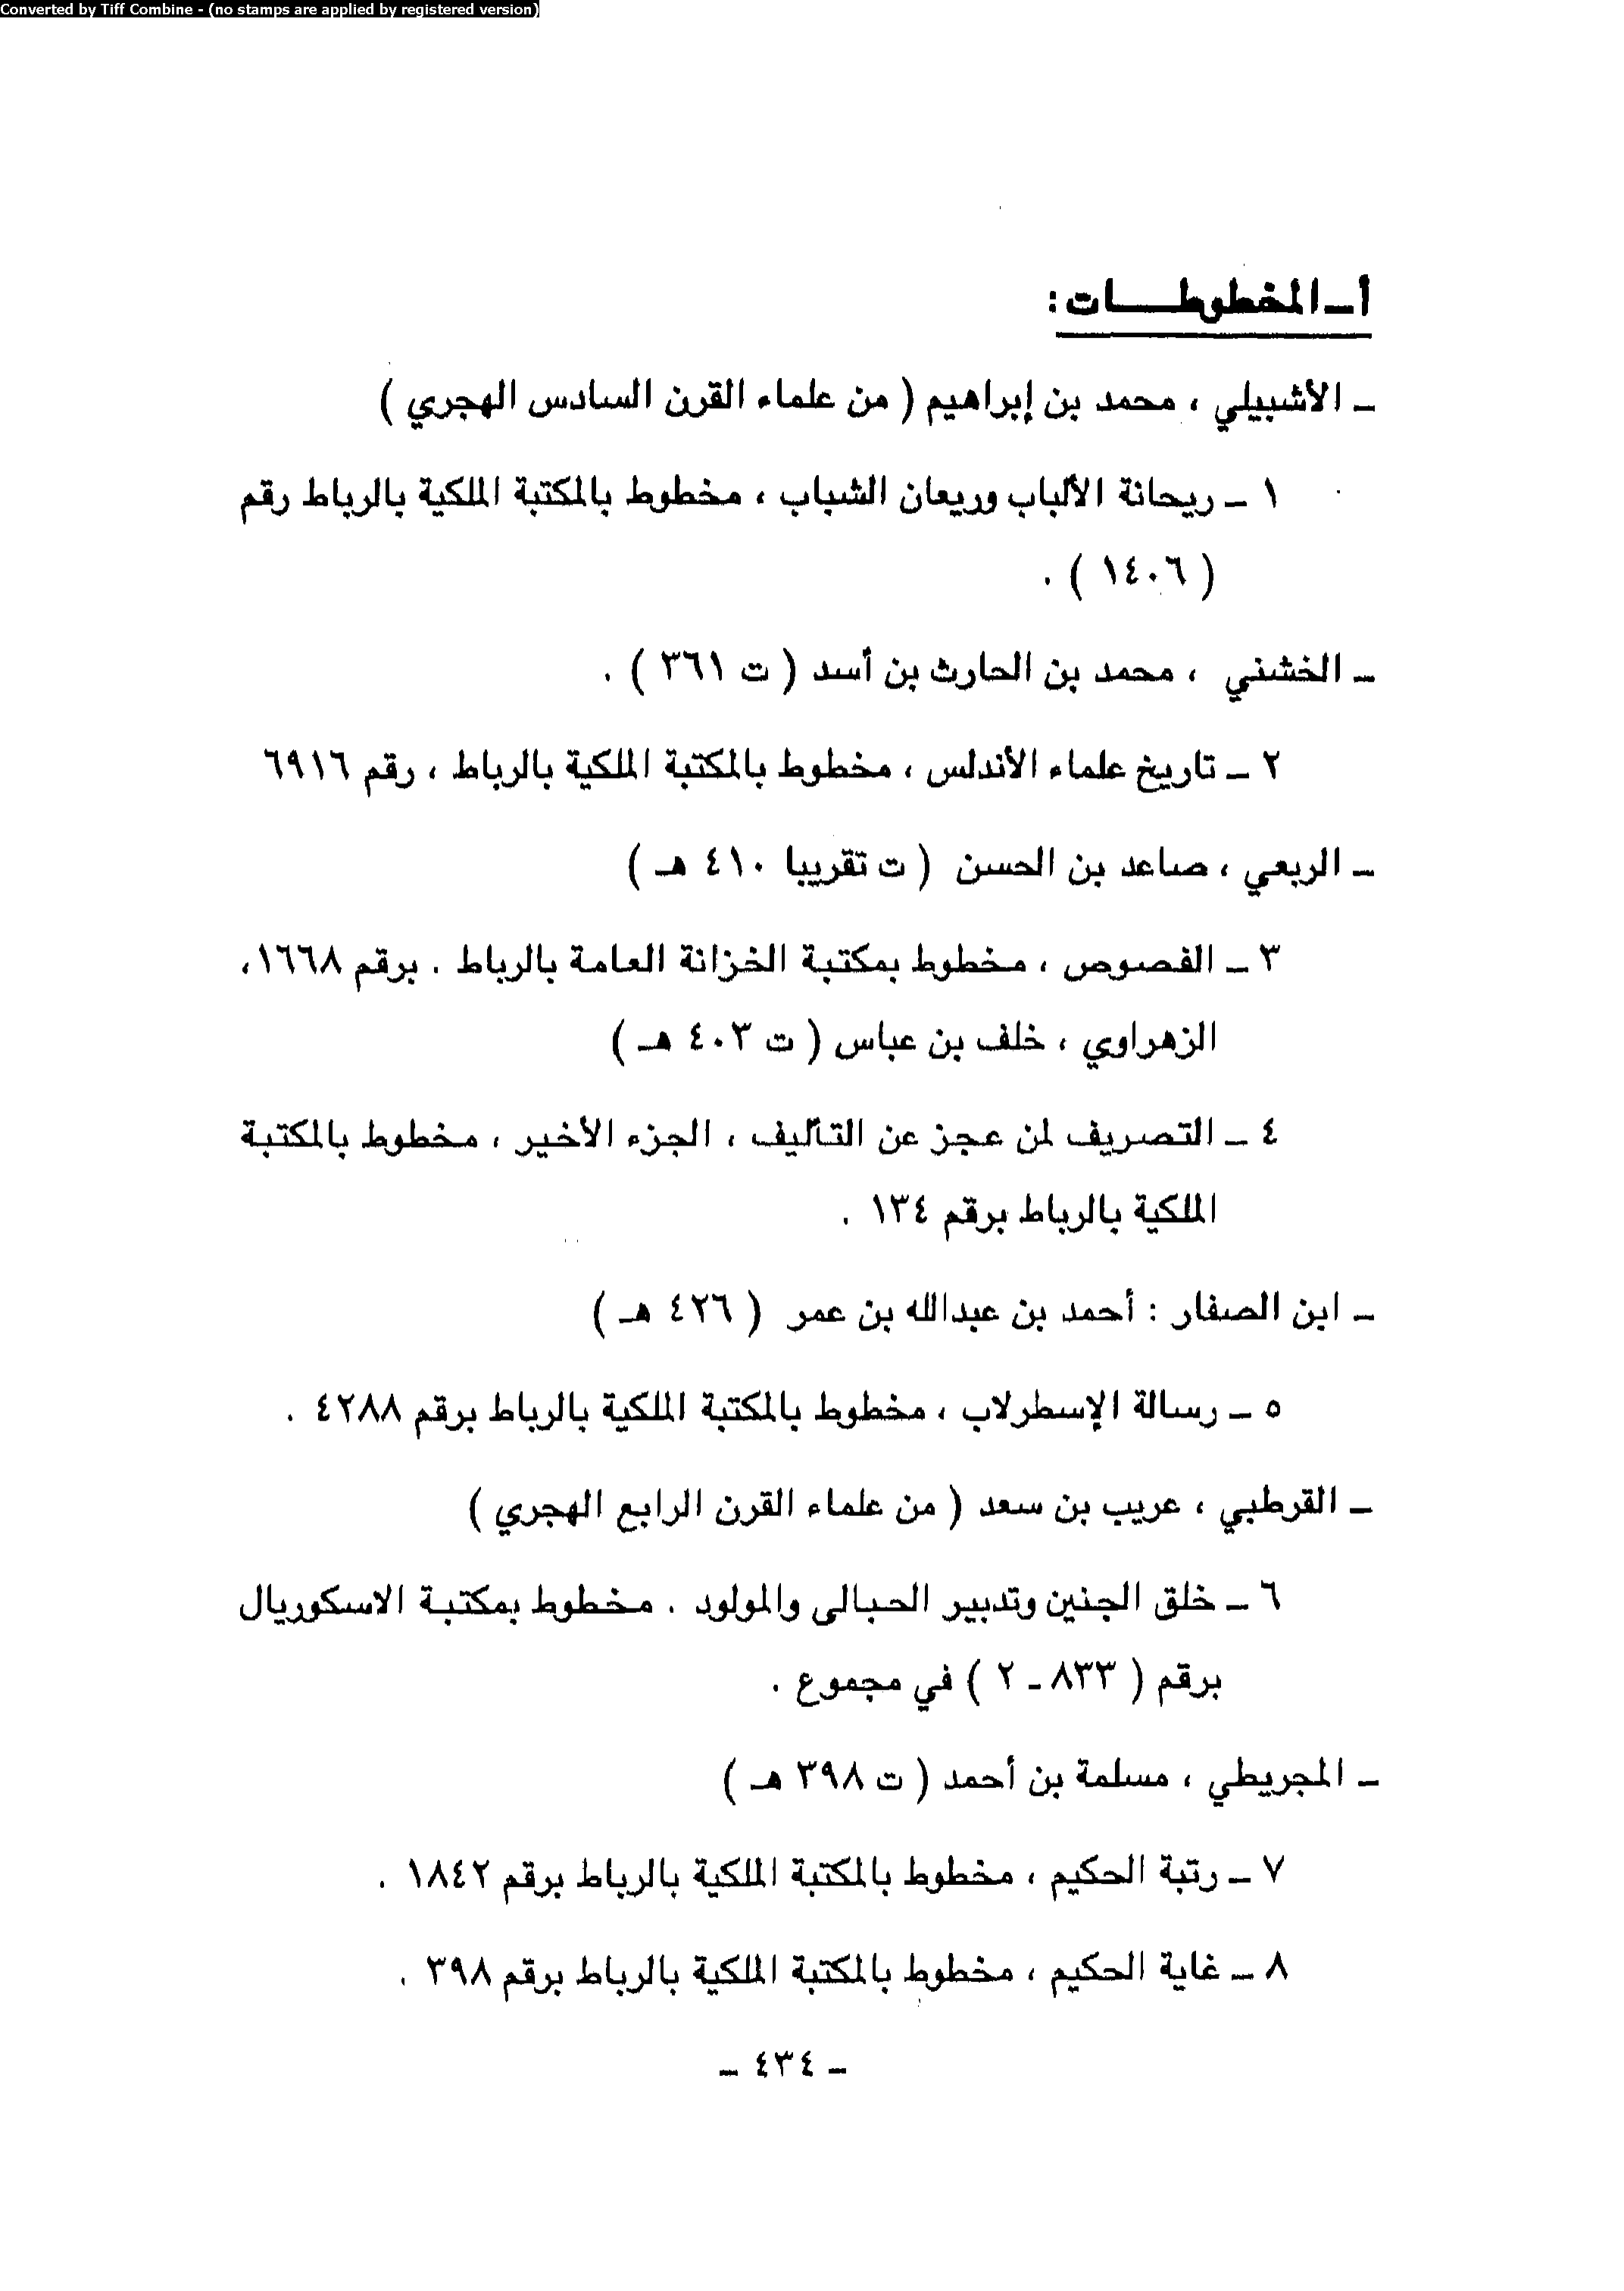 Converted by Tiff Combine - (no stamps are applied by registered version)
أ ـ المخطوطـــات :
ـ الأشبيلي ، محمد بن إبراهيم ( من علماء القرن السادس الهجري )
١ ـ ريحانة الألباب وريعان الشباب ، مخطوط بالمكتبة الملكية بالرباط رقم
( ١٤٠٦ ) .
ـ الخشني ، محمد بن الحارث بن أسد ( ت ٣٦١ ) .
٢ ـ تاريخ علماء الأندلس ، مخطوط بالمكتبة الملكية بالرباط ، رقم ٦٩١٦
ـ الربعي ، صاعد بن الحسن ( ت تقريبا ٤١٠ هـ )
٣ ـ الفصوص ، مخطوط بمكتبة الخزانة العامة بالرباط . برقم ١٦٦٨،
الزهراوي ، خلف بن عباس ( ت ٤٠٣ هـ )
٤ ـ التصريف لمن عجز عن التأليف ، الجزء الأخير ، مخطوط بالمكتبة
الملكية بالرباط برقم ١٣٤ .
ـ ابن الصفار : أحمد بن عبدالله بن عمر ( ٤٢٦ هـ )
٥ ـ رسالة الإسطرلاب ، مخطوط بالمكتبة الملكية بالرباط برقم ٤٢٨٨ .
ـ القرطبي ، عريب بن سعد ( من علماء القرن الرابع الهجري )
٦ ـ خلق الجنين وتدبير الحبالى والمولود . مخطوط بمكتبة الاسكوريال
برقم ( ٨٣٣ ـ ٢ ) في مجموع .
ـ المجريطي ، مسلمة بن أحمد ( ت ٣٩٨ هـ )
٧ ـ رتبة الحكيم ، مخطوط بالمكتبة الملكية بالرباط برقم ١٨٤٢ .
٨ ـ غاية الحكيم ، مخطوط بالمكتبة الملكية بالرباط برقم ٣٩٨ .
ـ ٤٣٤ ـ